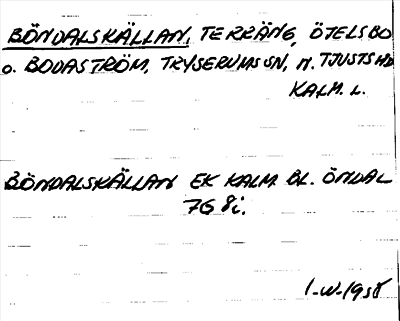 BÖNDALSKÄLLAN, TERRÄNG, ÖTELSBO
O. BODASTRÖM, TRYSERUMS SN, N. TJUSTS HD
KALM. L.
BÖNDALSKÄLLAN EK KALM. BL. ÖNDAL
7G 8i.
I-W-1958